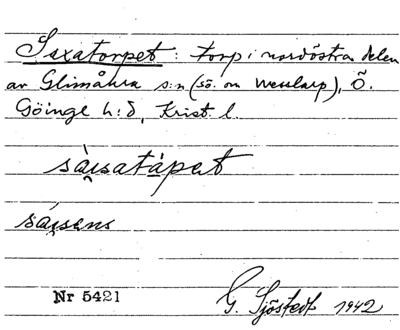 Saxatorpet: torp i nordöstra delen
av Glimåkra s:n (sö. om Wesslarp), Ö.
Göinge h:d, Krist. l.
sàu̯satå̀pet
sáu̯sens
Nr 5421
G. Sjöstedt 1942